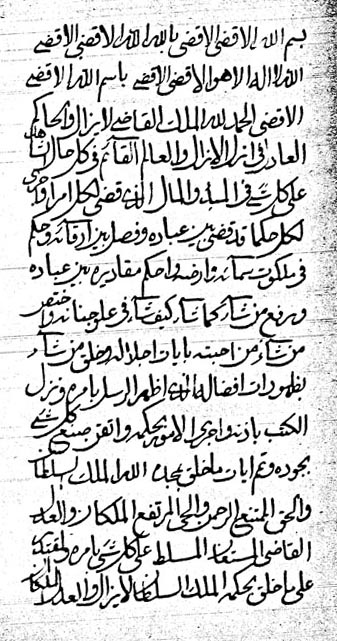 بسم الله الاقضى الاقضى بالله الله الاقضى الاقضى
الله لا اله الا هو الاقضى الاقضى باسم الله الاقضى
الاقضى الحمد لله الملك القاضى لايزال والحاكم
العادل فى ازل الازال والعالم القائم فى كل حال
على كل شئ فى المبدء والمال الذى قضى لكل امر
لكل حكما قد قضى بين عباده وفصل بين ارقائه وحكم
فى ملكوت سمائه وارضه واحكم مقاديره بين عباده
ورفع من شاء كما شاء كيف شاء فى على جنانه
من شاء من احبته بايات اجلاله وخلق من شاء
بظهورات افضاله الذى اظهر الرسل بامره ونزل
الكتب باذنه واجرى الامور بحكمه واتقن صنع كل شئ
بجوده وتم ايات ما خلق بمجده الله الملك السلطان
والحق الممتنع الرحمن والحى المرتفع الملكان والعدل
القاضى المستعان المسلط على كل شئ بامره
على ما خلق بحكمه الملك السلطان لايزال والعدل